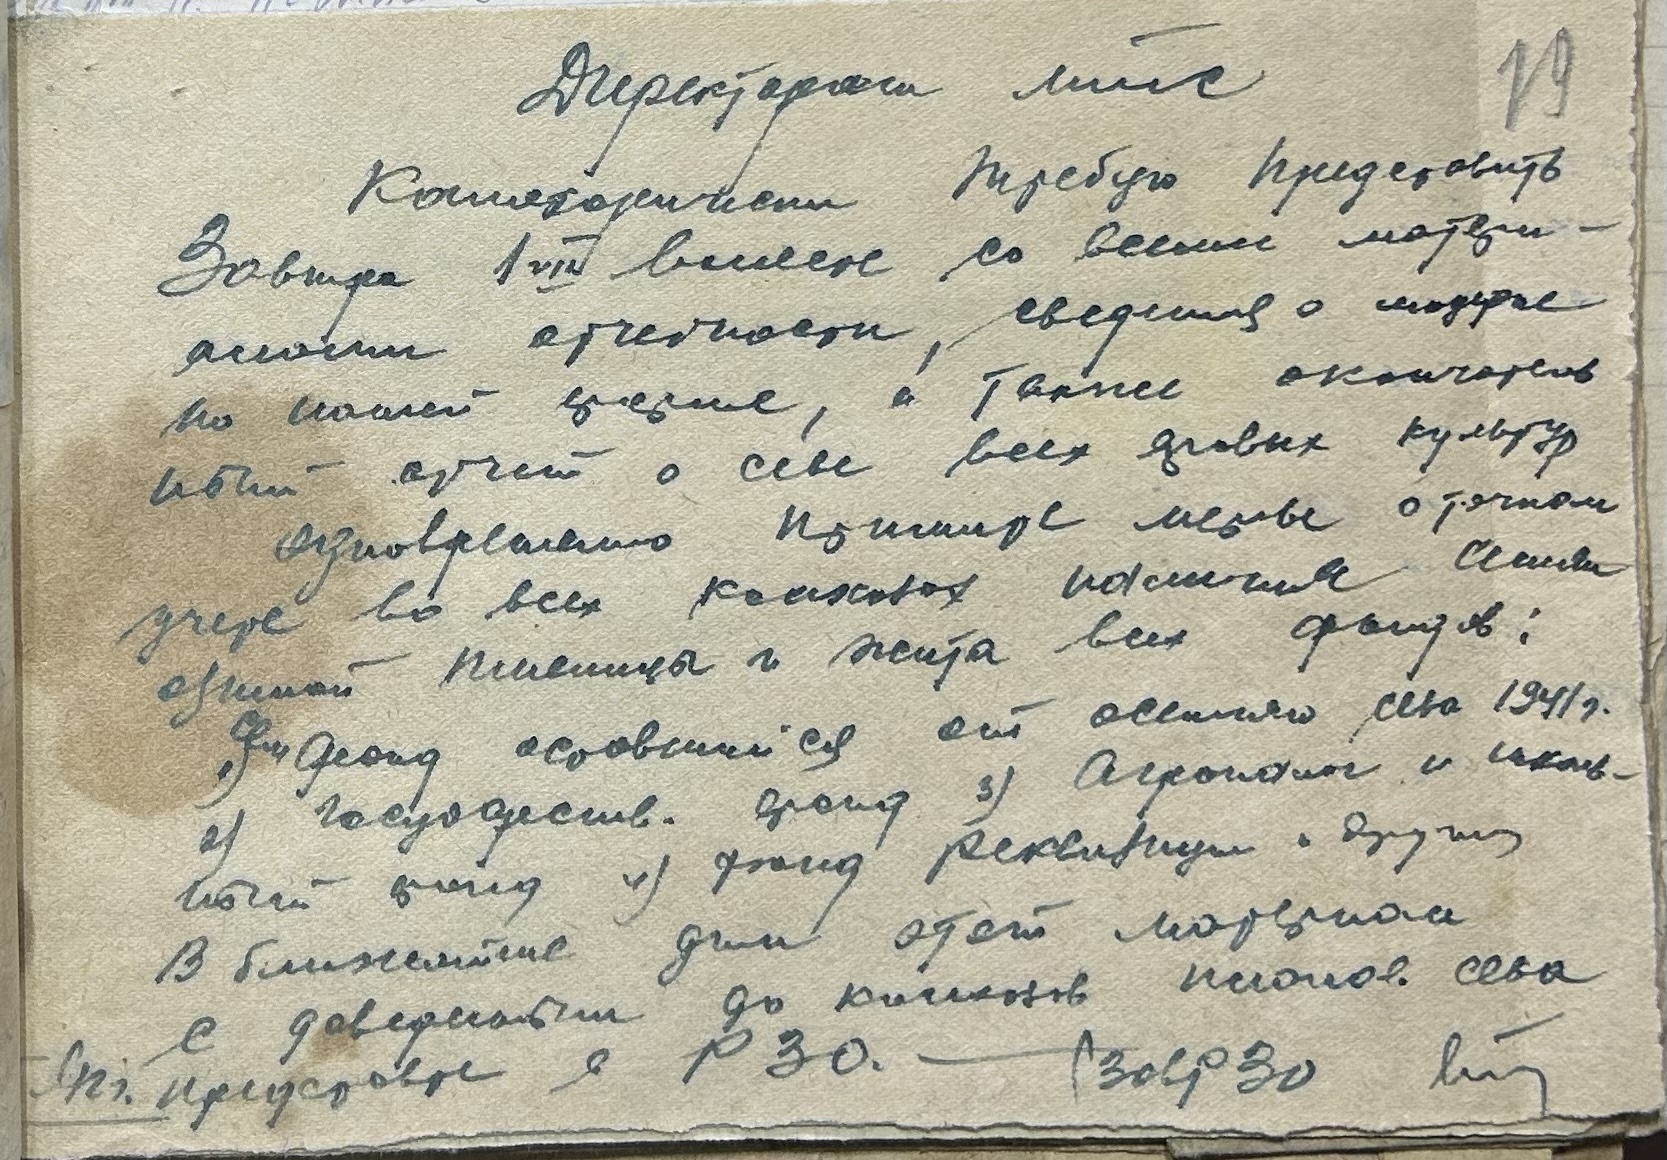 19
Директорам мтс
Категорически требую представить
Завтра 1 VIII вместе со всеми матери-
алами отчетности, сведения о
по форме, а также окончатель
ный отчет о севе всех яровых культур
одновременно примите меры о точном
учете во всех колхозах наличия семян
озимой пшеницы и жита всех фондов:
1) Сем фонд оставшийся от осеннего сева 1941 г.
2) государств. фонд 3) и
ный фонд 4) фонд реквизиции и других
В ближайшие дни этот материал
с доведенным до колхозов планов. сева
представте в РЗО. — ЗавРЗО